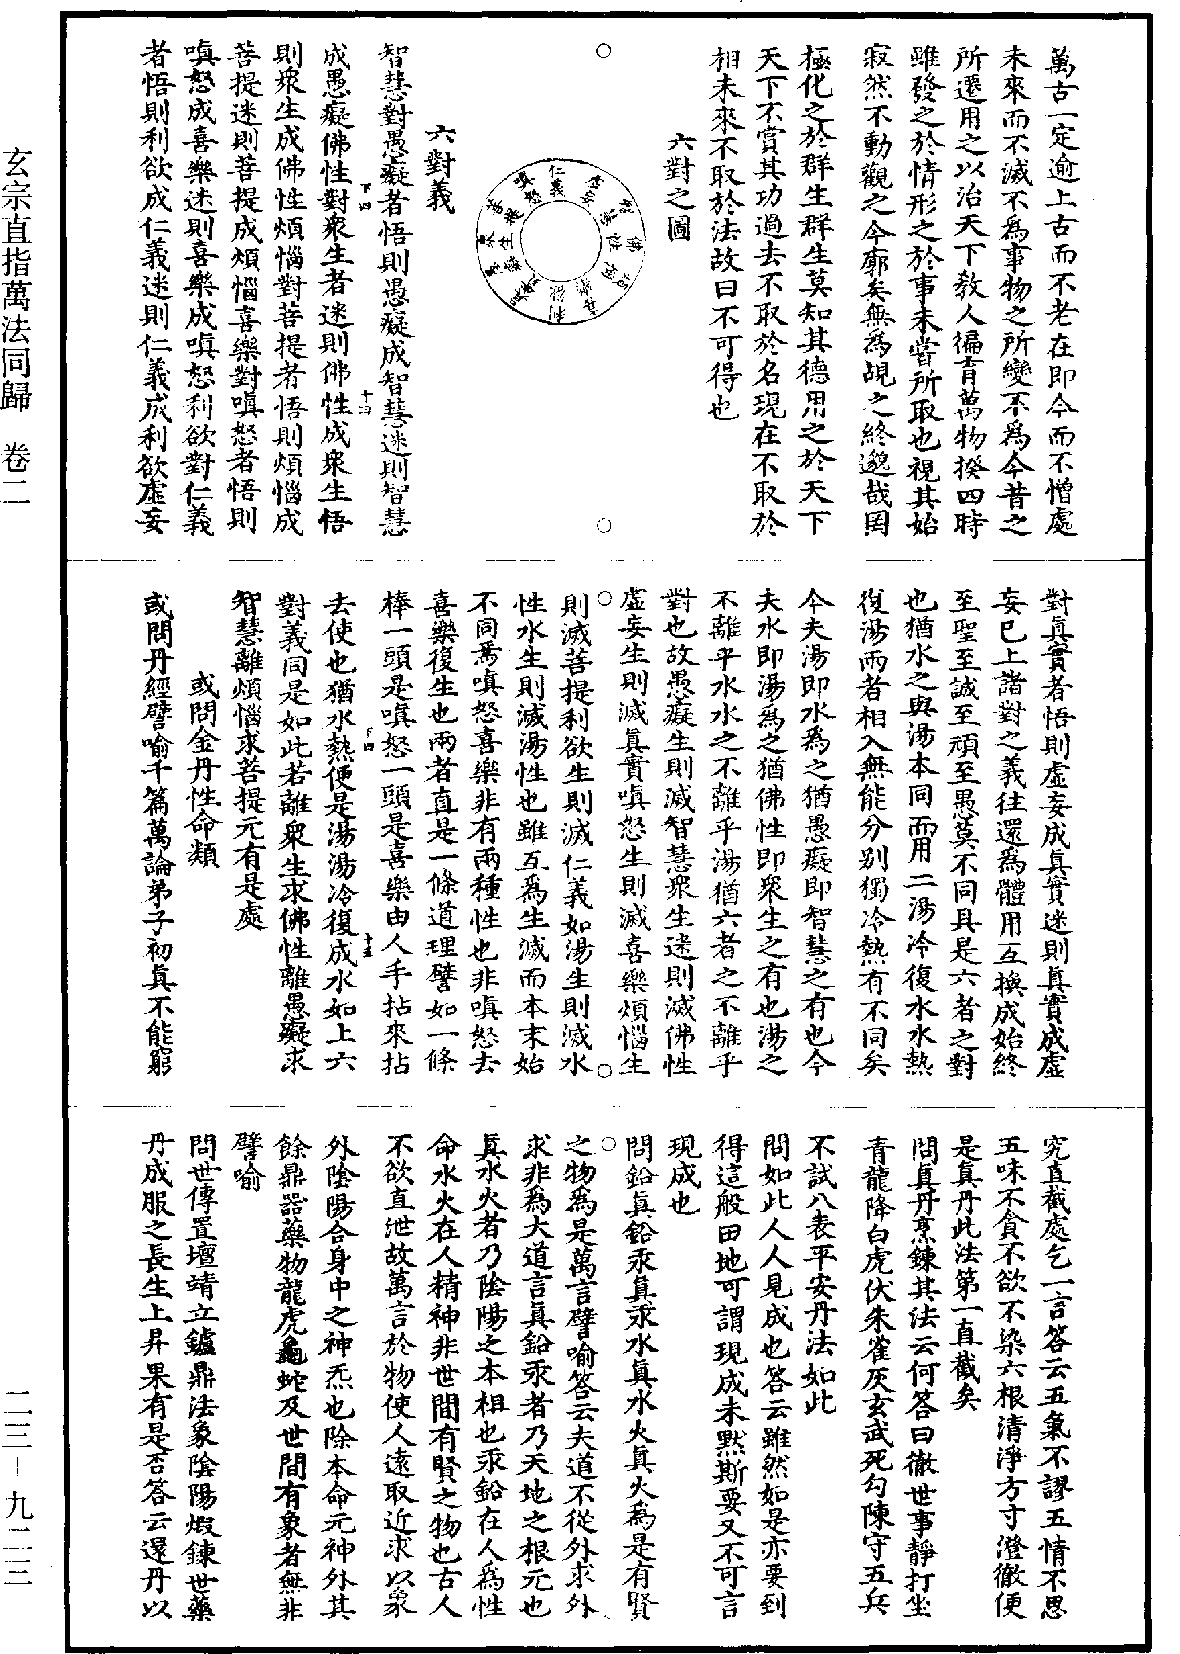 萬古一定逾上古而不老在即今而不憎處
未來而不滅不爲事物之所變不爲今昔之
所遷用之以治天下教人徧育萬物揆四時
雖發之於情形之於事未嘗所取也視其始
寂然不動觀之今廓矣無爲覘之終邈哉罔
極化之於群生群生莫知其德用之於天下
天下不賞其功過去不取於名現在不取於
相未來不取於法故曰不可得也
六對之圖
六對義
智慧對愚癡者悟則愚癡成智慧迷則智慧
成愚癡佛性對衆生者迷則佛性成衆生悟
則衆生成佛性煩惱對菩提者悟則煩惱成
菩提迷則菩提成煩惱喜樂對嗔怒者悟則
嗔怒成喜樂迷則喜樂成嗔怒利欲對仁義
者悟則利欲成仁義迷則仁義成利欲虛妄
對真實者悟則虛妄成真實迷則真實成虛
妄已上諸對之義往還爲體用互換成始終
至聖至誠至頑至愚莫不同具是六者之對
也猶水之與湯本同而用二湯冷復水水熱
復湯兩者相入無能分別獨冷熱有不同矣
今夫湯即水爲之猶愚癡即智慧之有也今
夫水即湯爲之猶佛性即衆生之有也湯之
不離乎水水之不離乎湯猶六者之不離乎
對也故愚癡生則滅智慧衆生迷則滅佛性
虛妄生則滅真實嗔怒生則滅喜樂煩惱生
則滅菩提利欲生則滅仁義如湯生則滅水
性水生則滅湯性也雖互爲生滅而本末始
不同焉嗔怒喜樂非有兩種性也非嗔怒去
喜樂復生也兩者直是一條道理譬如一條
棒一頭是嗔怒一頭是喜樂由人手拈來拈
去使也猶水熱便是湯湯冷復成水如上六
對義同是如此若離衆生求佛性離愚癡求
智慧離煩惱求菩提元有是處
或問金丹性命類
或問丹經譬喻千篇萬論弟子初真不能窮
究直截處乞一言答云五氣不謬五情不思
五味不貪不欲不染六根清淨方寸澄徹便
是真丹此法第一直截矣
問真丹烹鍊其法云何答曰徹世事靜打坐
青龍降白虎伏朱雀灰玄武死勾陳守五兵
不試八表平安丹法如此
問如此人人見成也答云雖然如是亦要到
得這般田地可謂現成未默斯要又不可言
現成也
問鉛真鉛汞真汞水真水火真火爲是有賢
之物爲是萬言譬喻答云夫道不從外求外
求非爲大道言真鉛汞者乃天地之根元也
真水火者乃陰陽之本相也汞鉛在人爲性
命水火在人精神非世間有賢之物也古人
不欲直泄故萬言於物使人遠取近求以象
外陰陽合身中之神炁也除本命元神外其
餘鼎器藥物龍虎龜蛇及世間有象者無非
譬喻
問世傳置壇靖立鑪鼎法象陰陽煅鍊世藥
丹成服之長生上昇果有是否答云還丹以
玄宗直指萬法同歸 卷二
二三－九二三